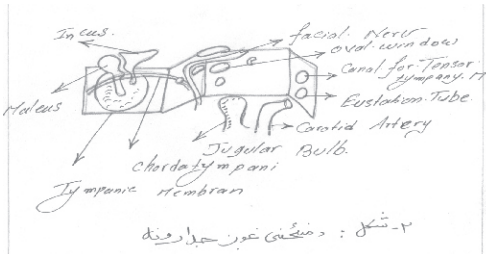 Incus.
facial. Nerv
oval. window
Canal for. Tensor
tympany. M
Maleus
Eustation. Tube.
Carotid Artery
Jugular Bulb.
chordatympani
Tympanic Membran
۲- شکل: د منځني غوږ جدارونه